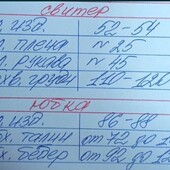 свитер
. изд. 52-54
. плеча ~ 25
. рукава ~ 45
хв. груди 110-120
юбка
. изд. 86-88
х. талии от 72 до 1
х. бёдер от 92 до 12